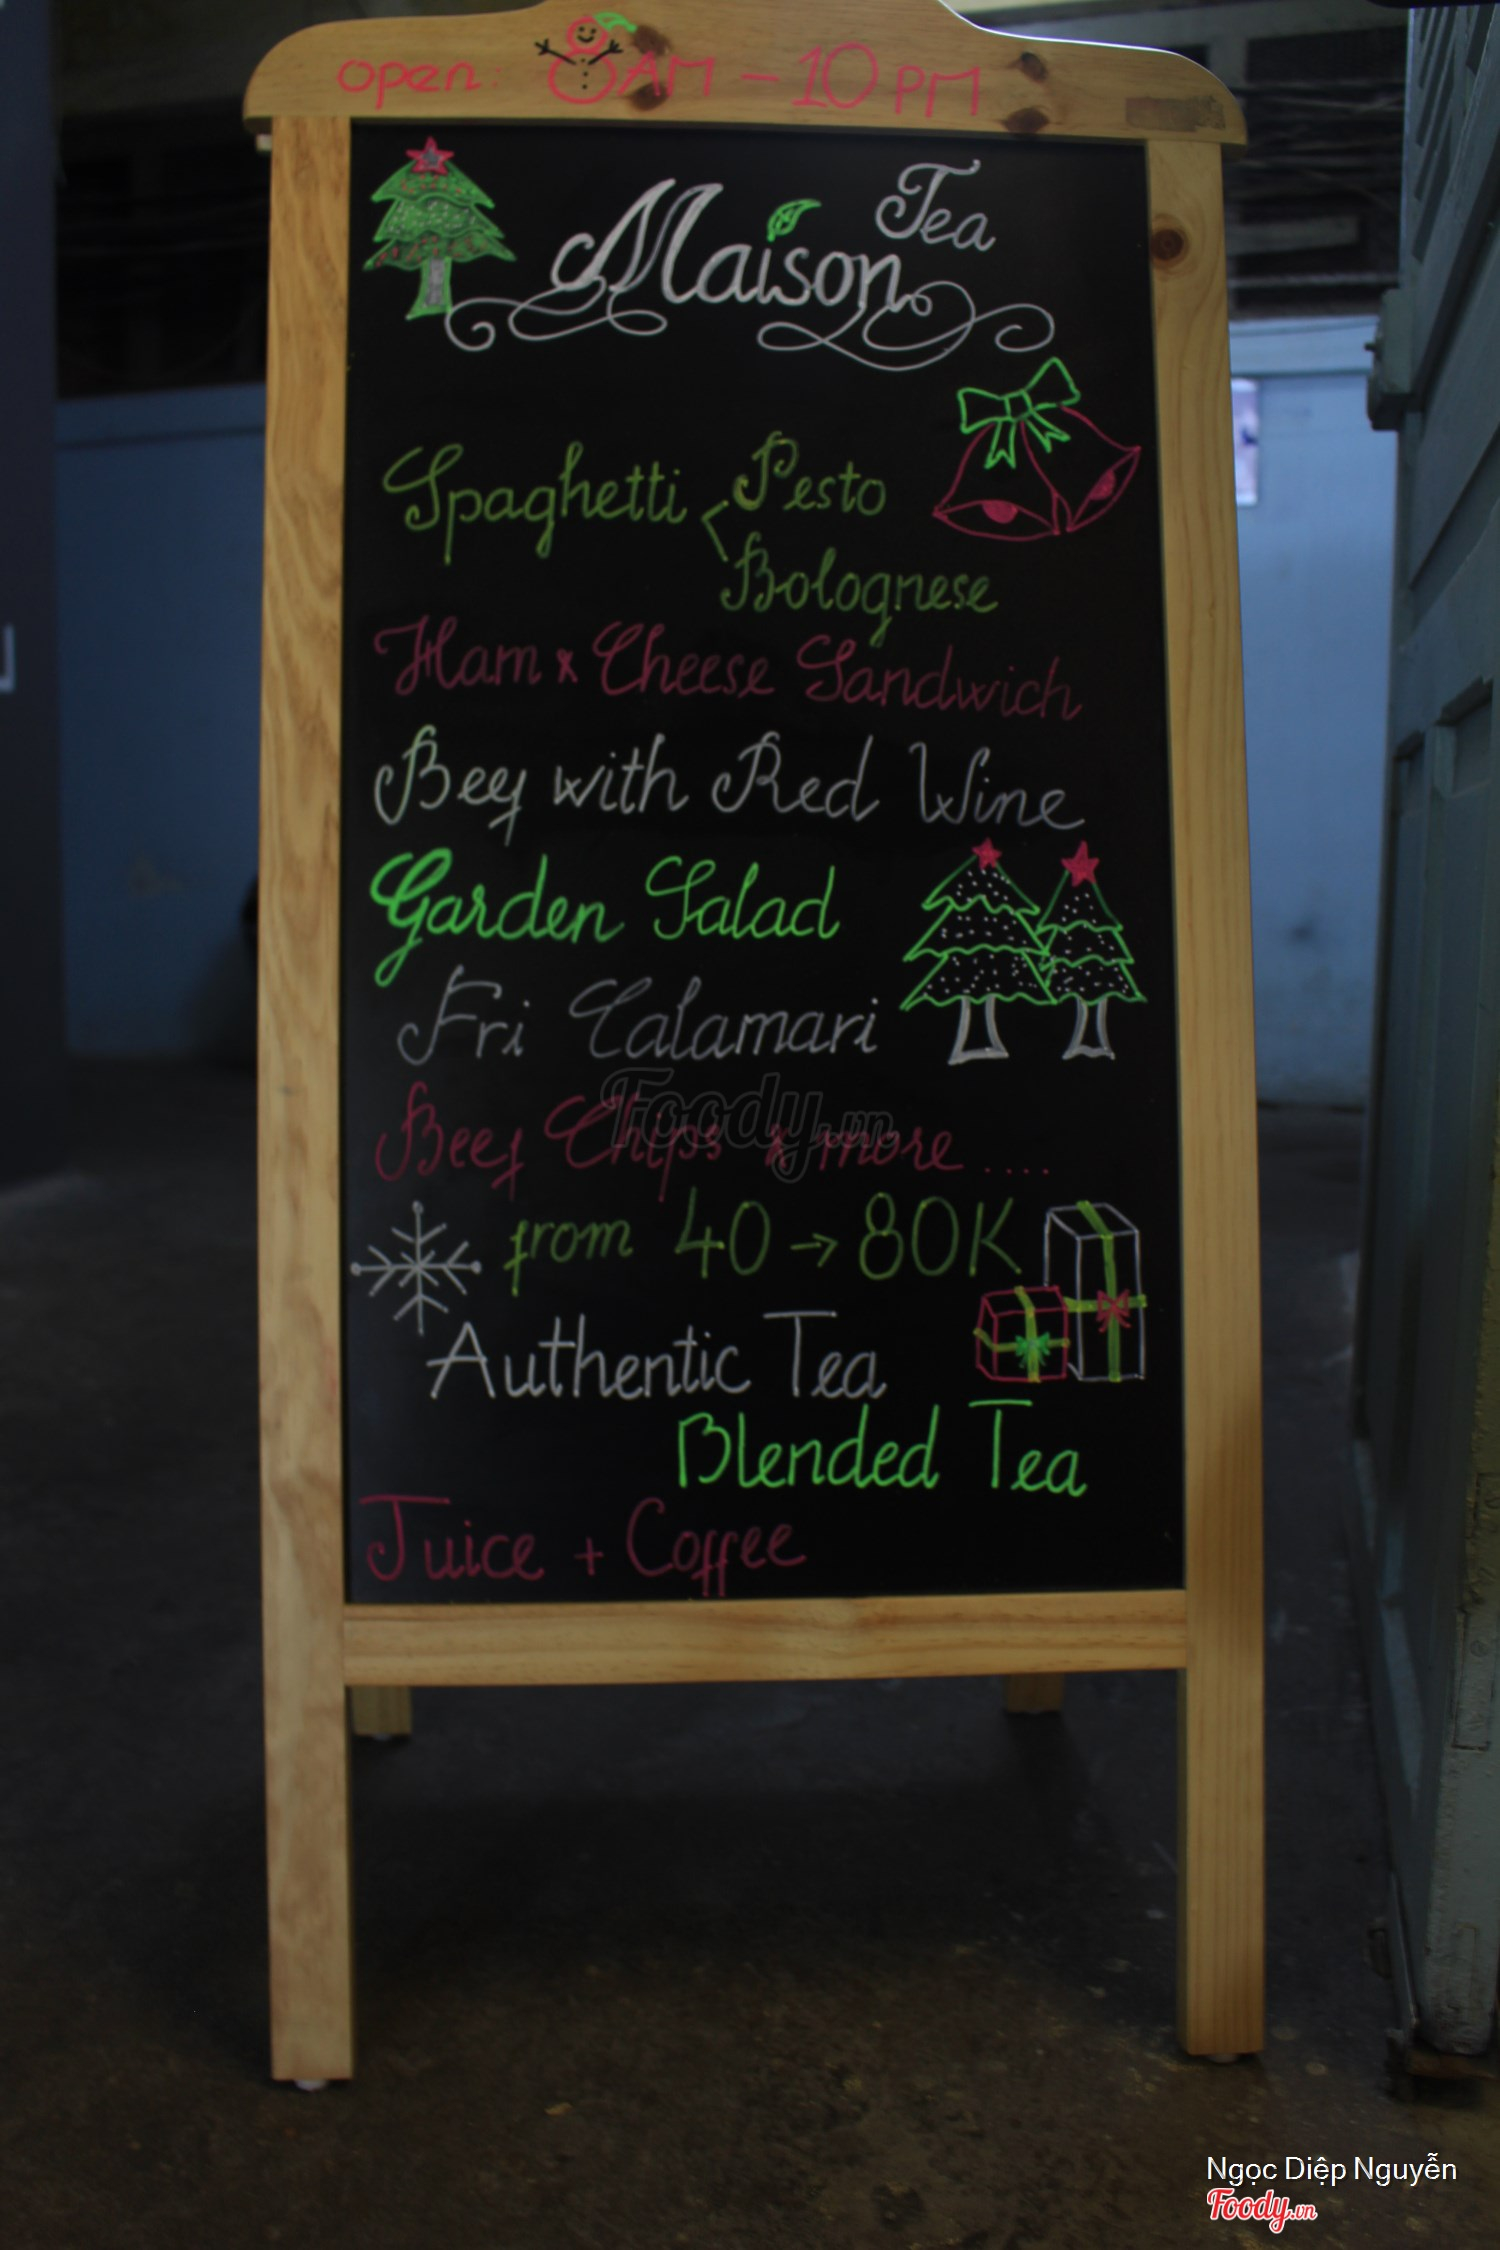 open: 8AM - 10PM
Tea
Maison
Spaghetti < Pesto
Bolognese
Ham & Cheese Sandwich
Beef with Red Wine
Garden Salad
Fri Calamari
Beef Chips & more ....
Foody.vn
from 40 → 80K
Authentic Tea
Blended Tea
Juice + Coffee
Ngọc Diệp Nguyễn
Foody.vn